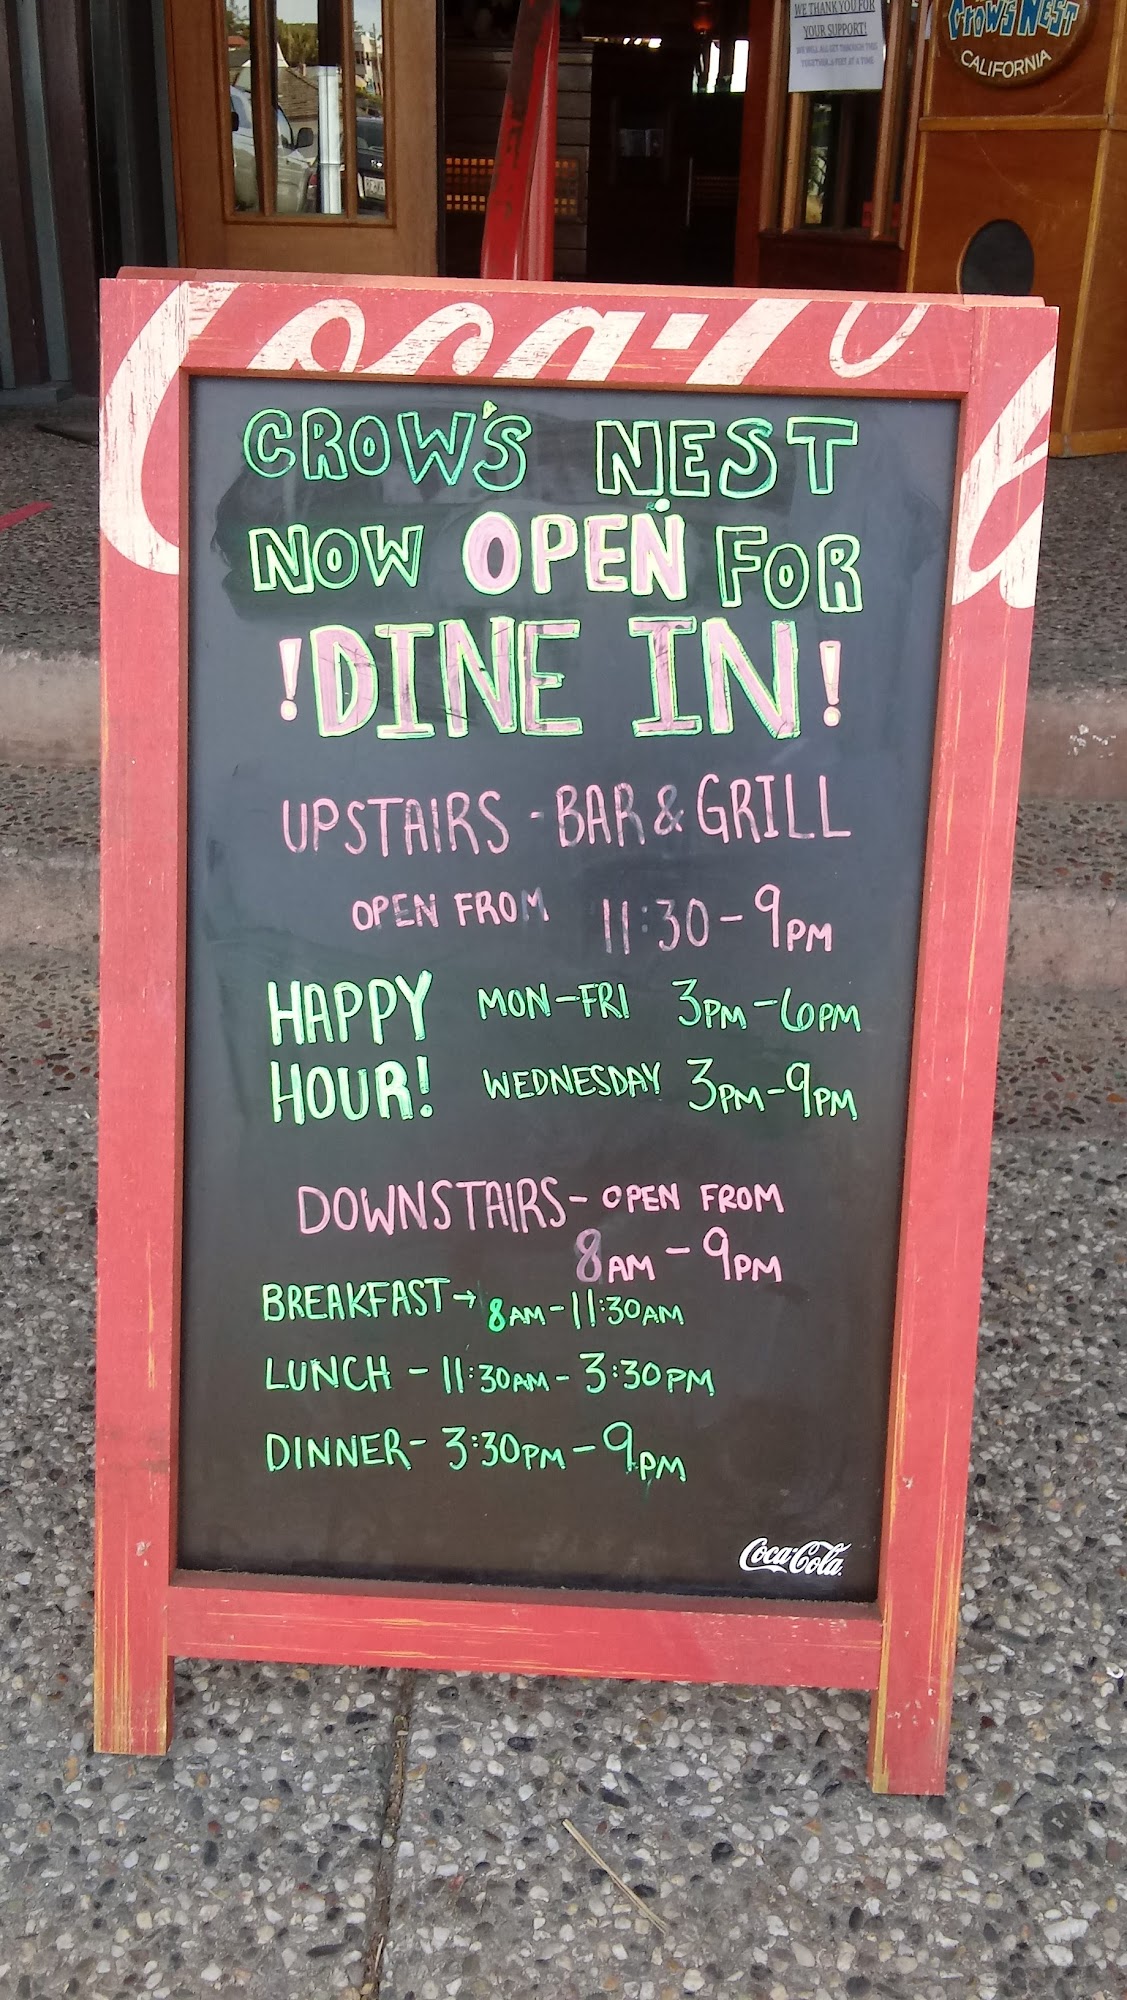 WE THANK YOU FOR
YOUR SUPPORT!
WE WILL ALL GET THROUGH THIS
TOGETHER, 6 FEET AT A TIME
CROW'S NEST
CALIFORNIA
Coca-Co
CROW'S NEST
NOW OPEN FOR
! DINE IN !
UPSTAIRS - BAR & GRILL
OPEN FROM 11:30 - 9PM
HAPPY HOUR! MON-FRI 3PM-6PM
WEDNESDAY 3PM-9PM
DOWNSTAIRS - OPEN FROM
8AM - 9PM
BREAKFAST → 8AM-11:30AM
LUNCH - 11:30AM - 3:30PM
DINNER - 3:30PM - 9PM
Coca-Cola